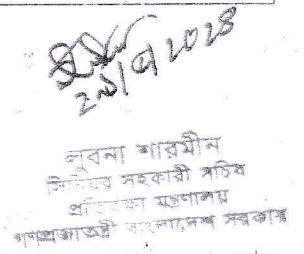 ২১/৫/২০২৪
লুবনা শারমীন
সিনিয়র সহকারী সচিব
প্রতিরক্ষা মন্ত্রণালয়
গণপ্রজাতন্ত্রী বাংলাদেশ সরকার